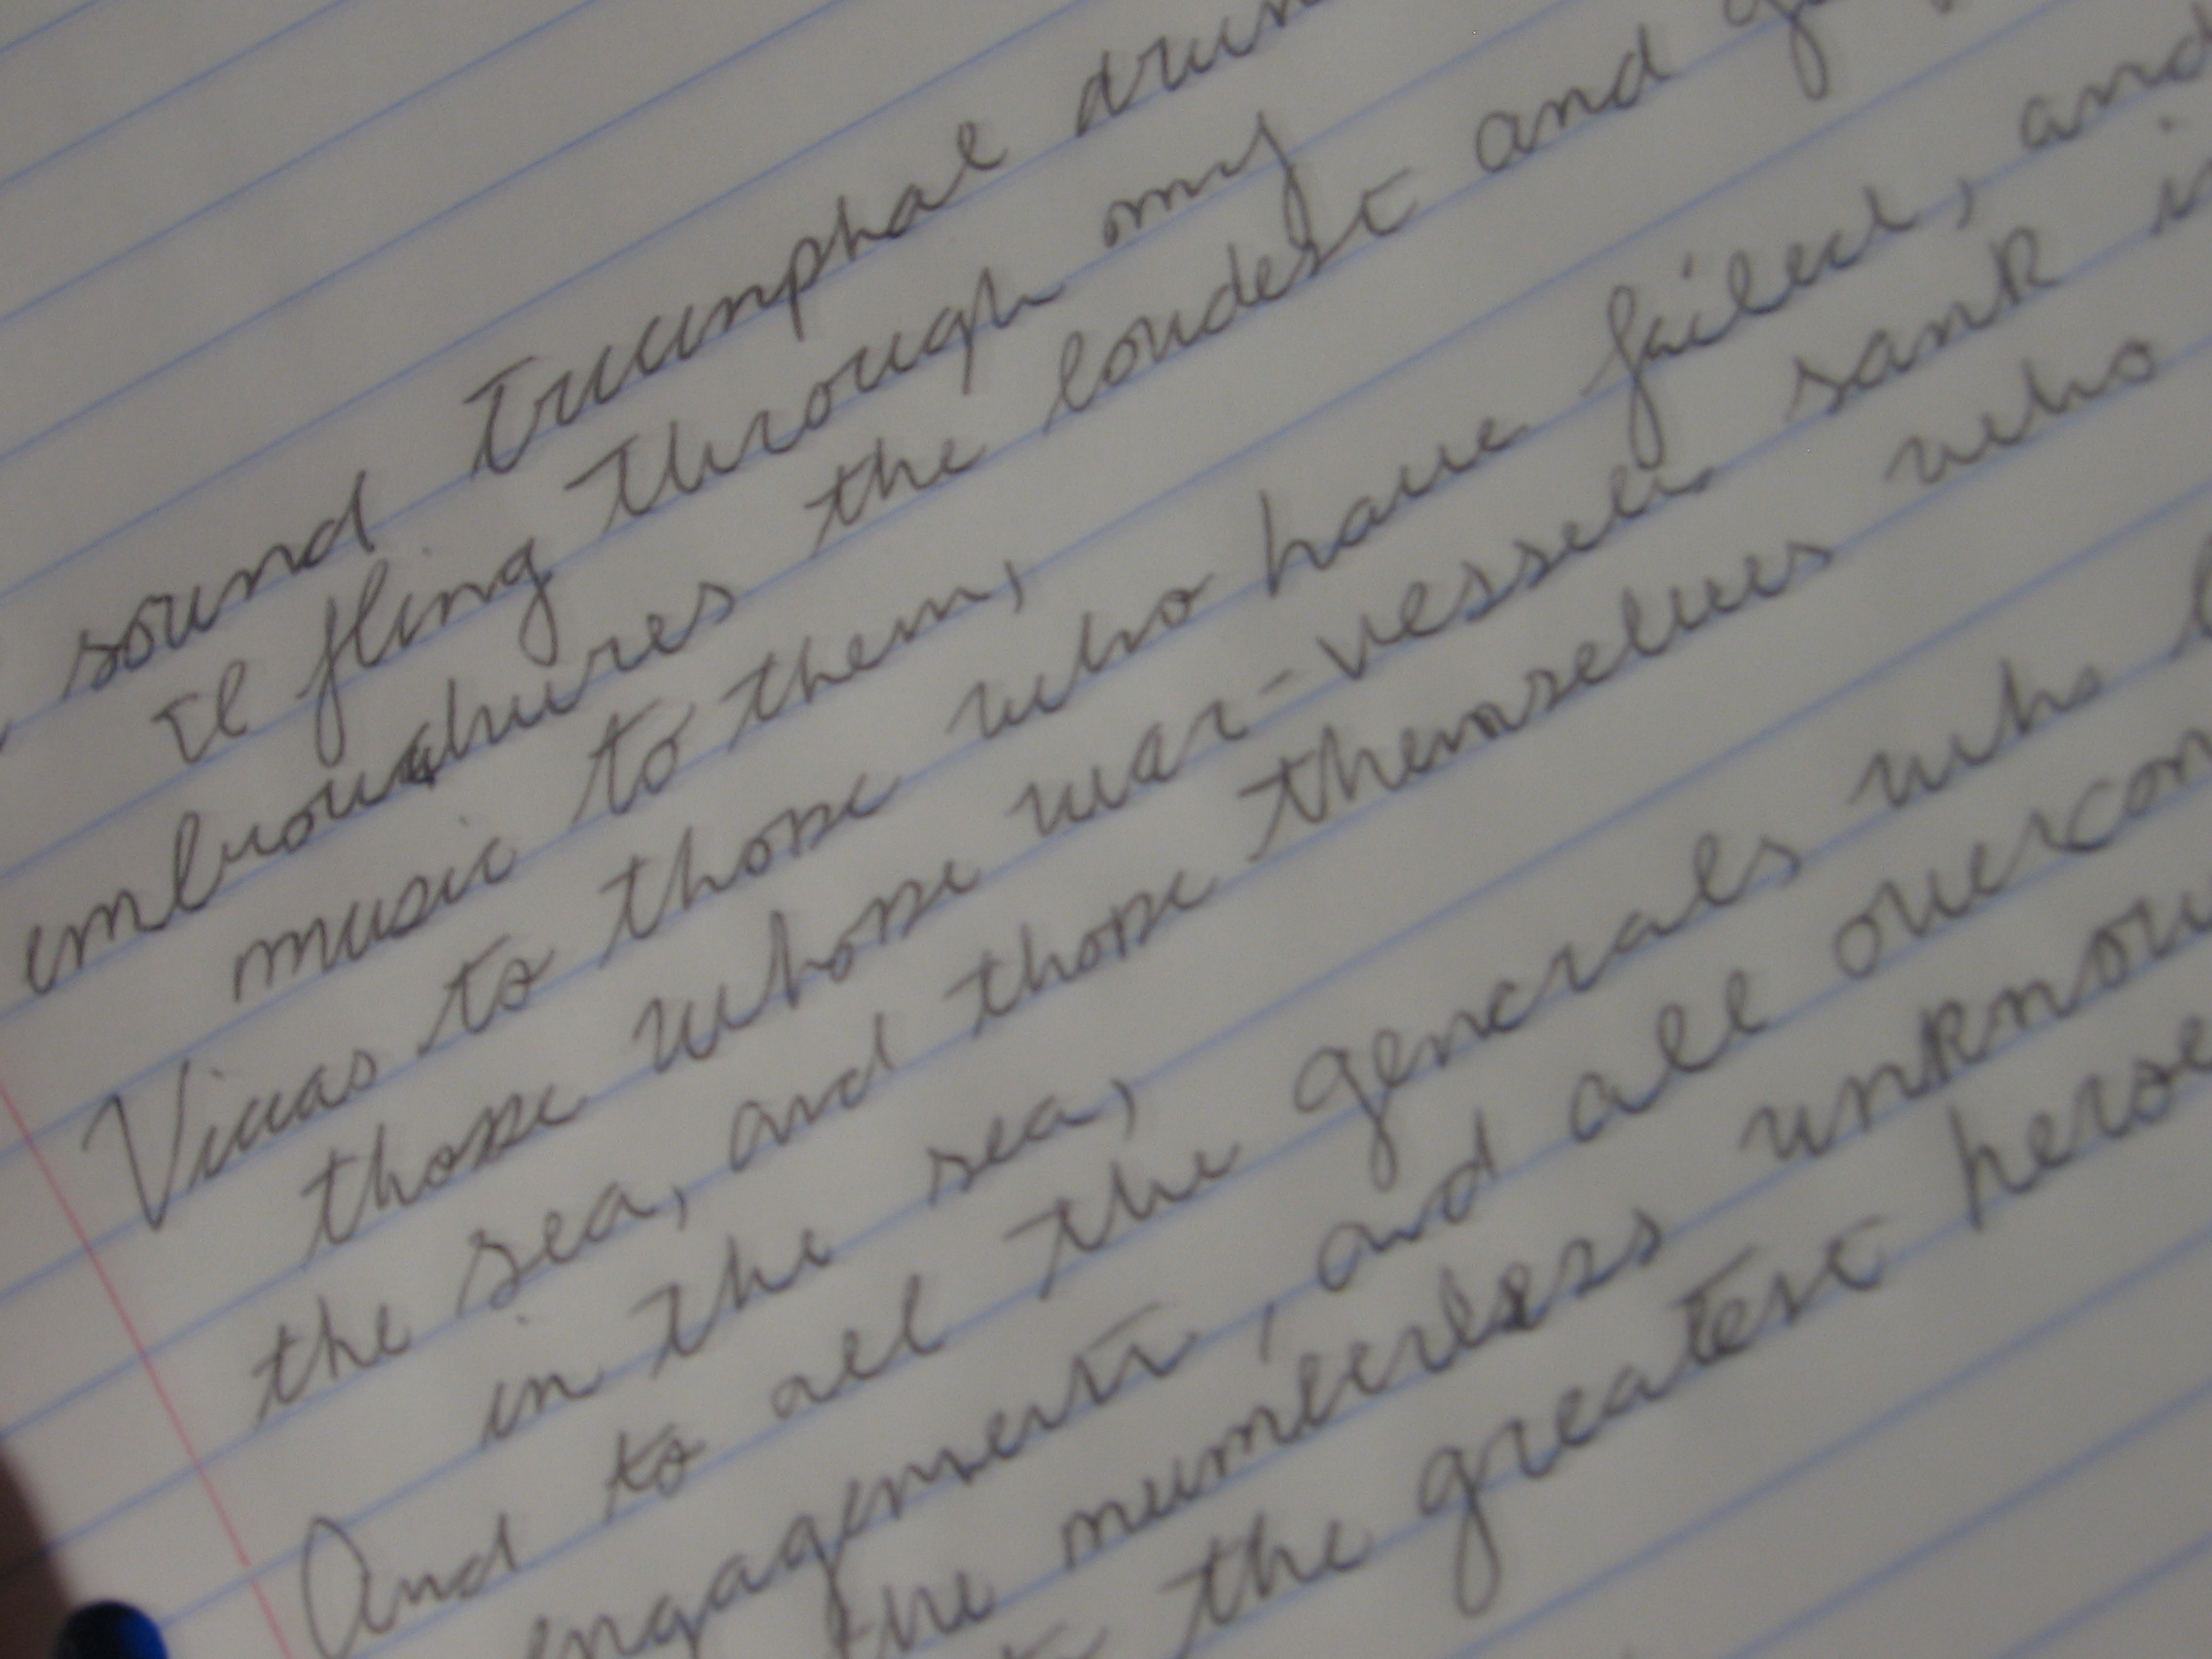 sound triumphal drum
I'll fling through my
embouchures the loudest and
music to them,
Vivas to those who have failed, and
those whose war-vessels sank in
the sea, and those themselves who
in the sea,
And to all the generals who
engagements, and all overcom
the numberless unknow
the greatest heroe